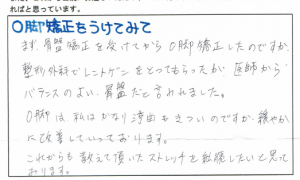 ればと思っています。
O脚矯正をうけてみて
まず、骨盤矯正を受けてから O脚矯正したのですが、
整形外科でレントゲンをとってもらったが、医師から
バランスのよい、骨盤だと言われました。
O脚は、私はかなり湾曲もきついのですが、緩やか
に改善していっております。
これからも教えて頂いたストレッチを継続したいと思って
おります。